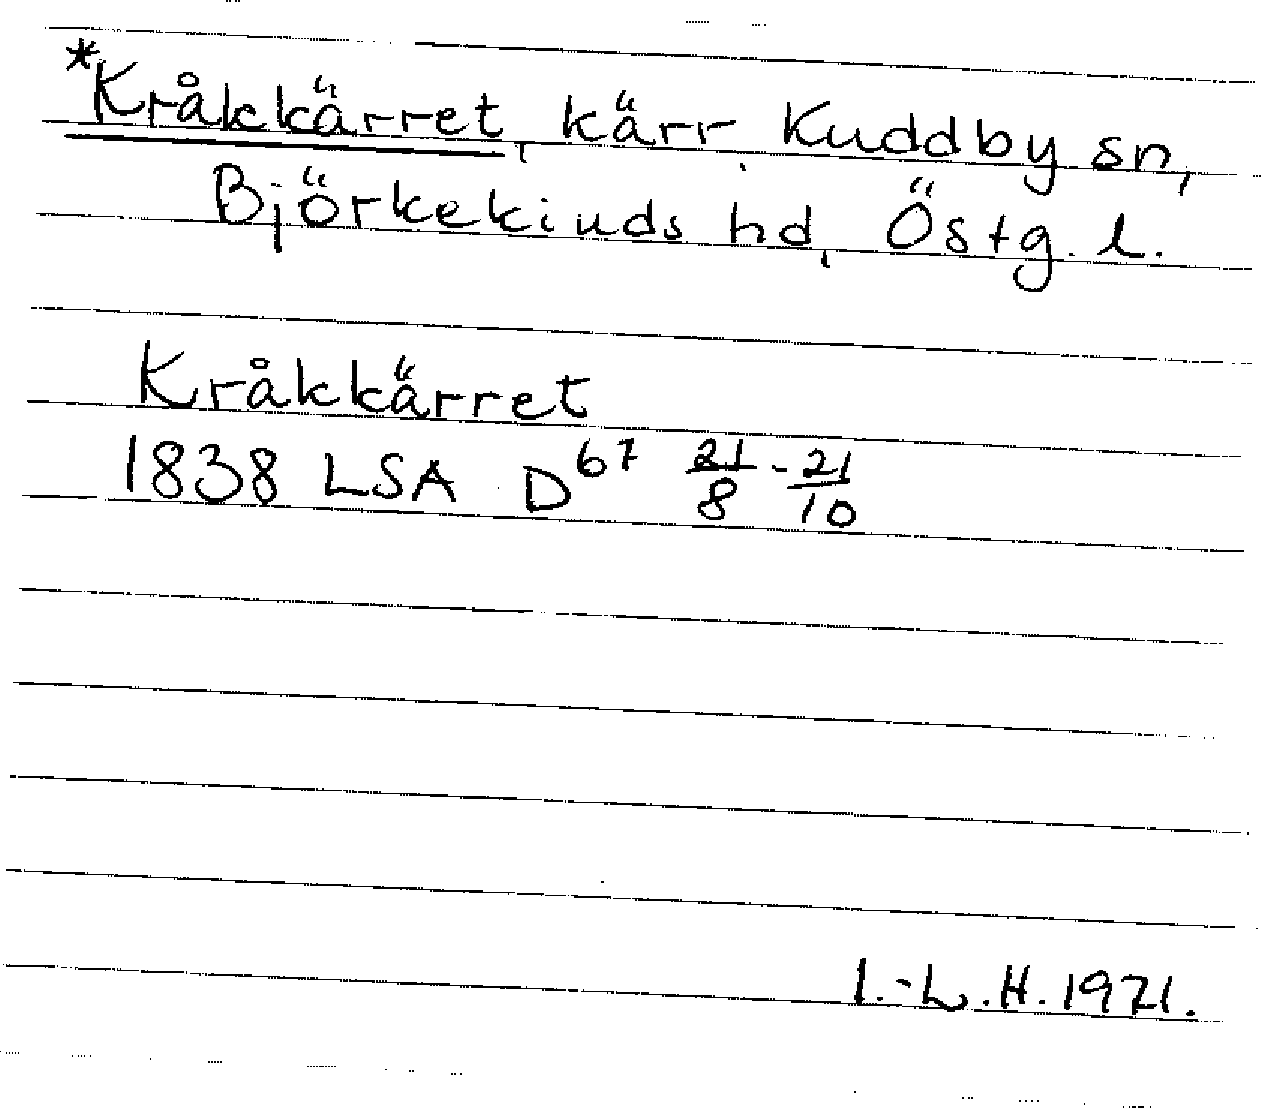 *Kråkkärret, kärr Kuddby sn,
Björkekinds hd, Östg. l.
Kråkkärret
1838 LSA D⁶⁷ 21/8 - 21/10
I.-L.H. 1971.